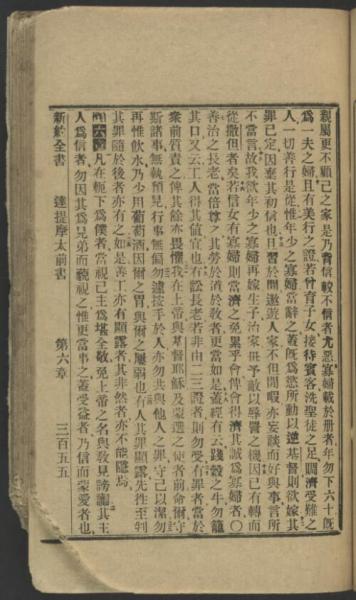 親屬更不顧己之家是乃背信較不信者尤惡寡婦載於册者年勿下六十旣
爲一夫之婦且有美行之證若曾育子女接待賓客洗聖徒之足賙濟受難之
人一切善行是從惟年少之寡婦當辭之蓋旣爲慾所動以逆基督則欲嫁其
罪已定因棄其初信也且習於閒遨遊人家不但閒暇亦妄談而好與事言所
不當言故我欲年少之寡婦再嫁生子治家毋予敵以辱詈之機因已有轉而
從撒但者矣若信女有寡婦則當濟之免累乎會俾會得濟其誠爲寡婦者〇
善治之長老當倍尊之其勞於道於教者更當如是蓋經有云踐穀之牛勿籠
其口又云工人得其値宜也有訟長老若非由二三證者則勿受有罪者當於
衆前質責之俾其餘亦畏懼我在上帝與基督耶穌及蒙選之使者前命爾守
斯諸事無執預見行事無偏勿遽按手於人亦勿共與他人之罪守己以潔勿
再惟飮水乃少用葡萄酒因爾之胃與爾之屢弱也有人其罪顯露先往至判
其罪隨於後者亦有之如是善工亦有顯露者其非然者亦不能隱焉
第六章凡在軛下爲僕者當視己主爲堪全敬免上帝之名與教見謗讟其主
人爲信者勿因其爲兄弟而藐視之惟更當事之蓋受益者乃信而蒙愛者也
新約全書 達提摩太前書 第六章 三百五五